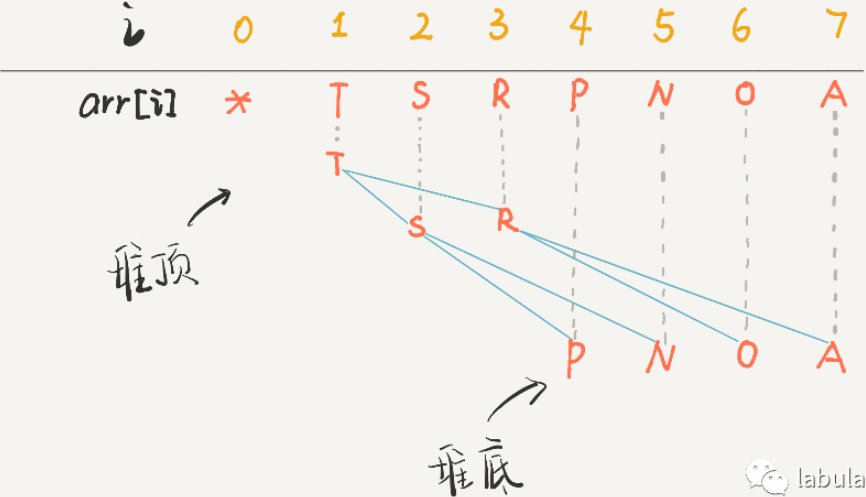 i 0 1 2 3 4 5 6 7
arr[i] * T S R P N O A
T
S R
堆顶
P N O A
堆底
labula